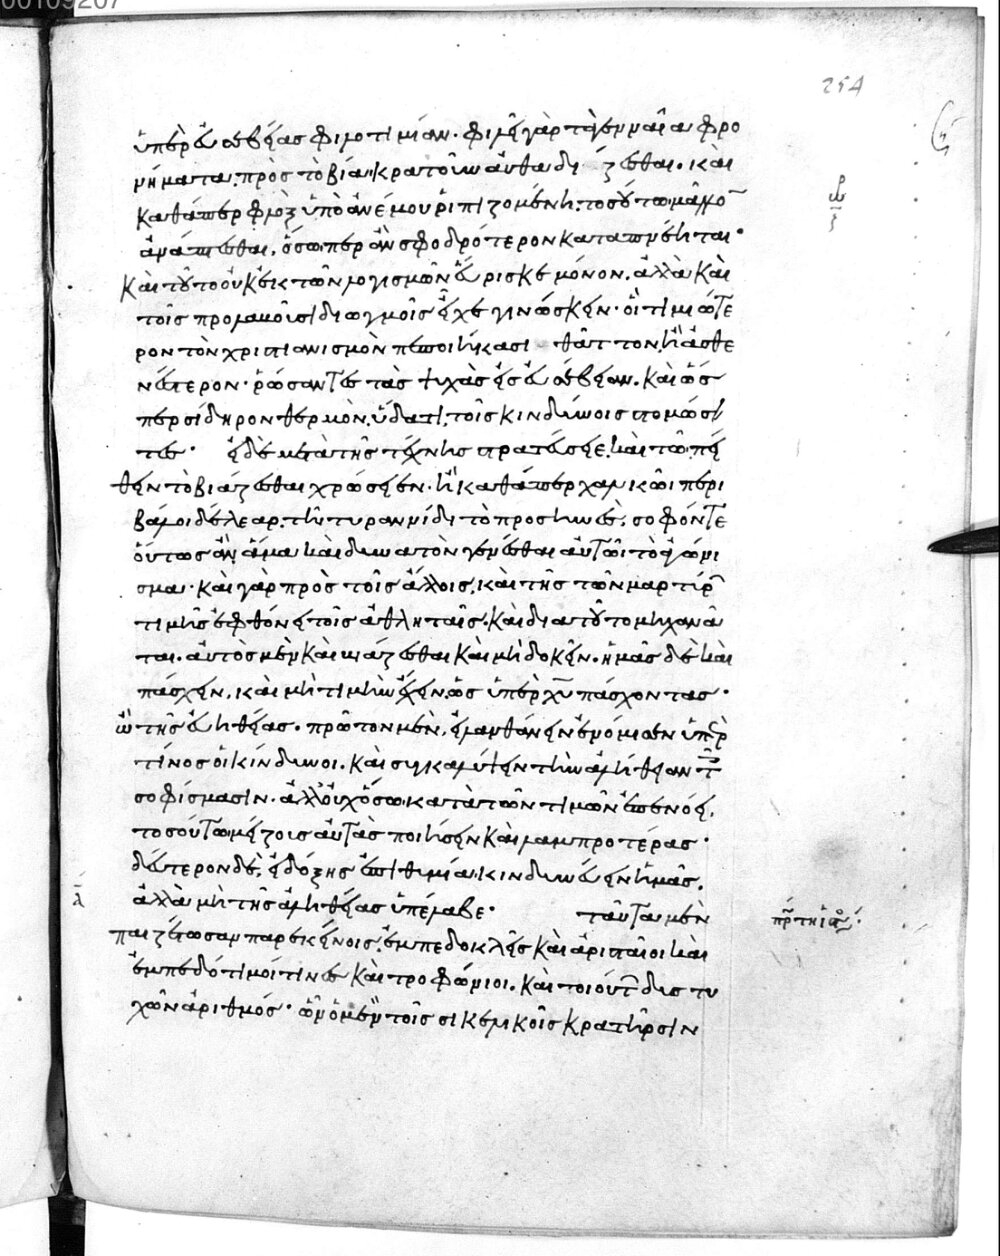 00109207
254
ὑπὲρ εὐσεβείας φιλοτιμίαν. φιλεῖ γὰρ τὰ γενναῖα φρο
νήματα, πρὸς τὸ βίᾳ κρατοῦν αὐθαδιάζεσθαι. καὶ
καθάπερ φλὸξ ὑπὸ ἀνέμου ῥιπιζομένη, τοσούτῳ μᾶλλον
ἀνάπτεσθαι, ὅσῳπερ ἂν σφοδρότερον καταπνέηται.
καὶ τοῦτο οὐκ ἐκ τῶν λογισμῶν εὕρισκε μόνον, ἀλλὰ καὶ
τοῖς προλαβοῦσι διωγμοῖς εἶχε γινώσκειν. οἳ τιμιώτε
ρον τὸν χριστιανισμὸν πεποιήκασι θᾶττον, ἢ ἀσθε
νέστερον. ῥώσαντες τὰς ψυχὰς εἰς εὐσέβειαν. καὶ ὥσ
περ σίδηρον θερμὸν ὕδατι, τοῖς κινδύνοις στομώσαν
τες. εἰ δὲ μετὰ τῆς τέχνης στρατεύσειε, καὶ τῷ πεί
θειν τὸ βιάζεσθαι χρώσειεν. ἢ καθάπερ χαλκῷ περι
βάλοι δέλεαρ, τῇ τυραννίδι τὸ προσηνές. σοφόν τε
οὕτως ἂν ἅμα καὶ δυνατὸν γενέσθαι αὐτῷ τὸ ἀγώνι
σμα. καὶ γὰρ πρὸς τοῖς ἄλλοις, καὶ τῆς τῶν μαρτύρων
τιμῆς ἐφθόνει τοῖς ἀθληταῖς. καὶ διὰ τοῦτο μηχανᾶ
ται. αὐτὸς μὲν καὶ βιάζεσθαι καὶ μὴ δοκεῖν. ἡμᾶς δὲ καὶ
πάσχειν, καὶ μὴ τιμὴν ἔχειν, ὡς ὑπὲρ χυ πάσχοντας.
ὢ τῆς εὐηθείας. πρῶτον μὲν, εἰ λανθάνειν ἐνόμισεν ὑπὲρ
τίνος οἱ κίνδυνοι. καὶ συγκαλύψειν τὴν ἀλήθειαν τοῖς
σοφίσμασιν. ἀλλ' οὐχ ὅσῳ κατὰ τῶν τιμῶν ἐπενόει,
τοσούτῳ μείζους αὐτὰς ποιήσειν καὶ λαμπροτέρας.
δεύτερον δέ, εἰ δόξης ἐπιθυμίᾳ κινδυνεύειν ἡμᾶς,
ἀλλὰ μὴ τῆς ἀληθείας ὑπέλαβε. ταῦτα μὲν
παιζέτωσαν παρ' ἐκείνοις, ἐμπεδοκλεῖς καὶ ἀρισταῖοι καὶ
ἐμπεδότιμοί τινες καὶ τροφώνιοι, καὶ τοιούτων δυστυ
χῶν ἀριθμός. ὧν ὁ μὲν τοῖς σικελικοῖς κρατῆρσιν